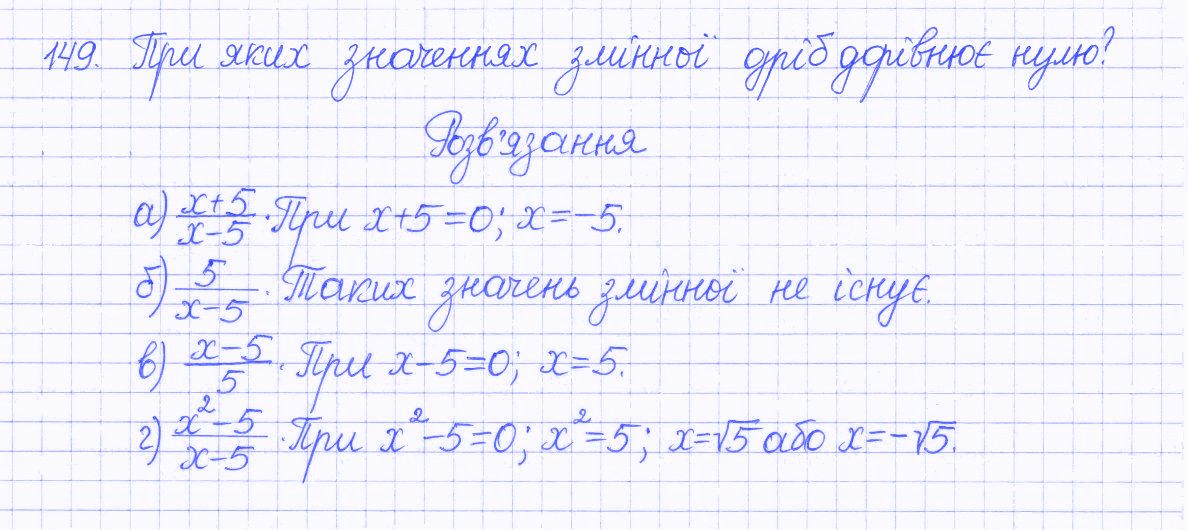 149. При яких значеннях змінної дріб дорівнює нулю?
Розв'язання
а) (x+5)/(x-5). При x+5=0; x=-5.
б) 5/(x-5). Таких значень змінної не існує.
в) (x-5)/5. При x-5=0; x=5.
г) (x²-5)/(x-5). При x²-5=0; x²=5; x=√5 або x=-√5.